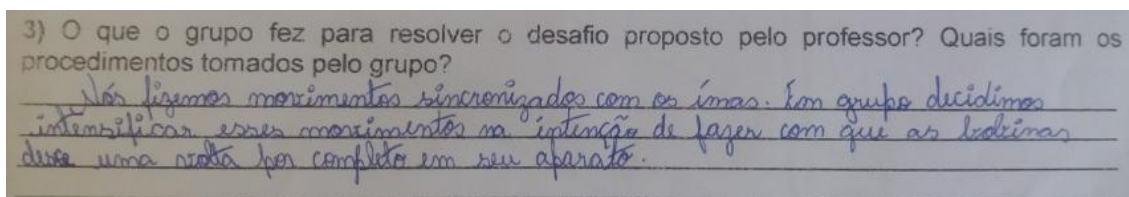 3) O que o grupo fez para resolver o desafio proposto pelo professor? Quais foram os
procedimentos tomados pelo grupo?
Nós fizemos movimentos sincronizados com os ímas. Em grupo decidimos
intensificar esses movimentos na intenção de fazer com que as bobinas
desse uma volta por completo em seu aparato.